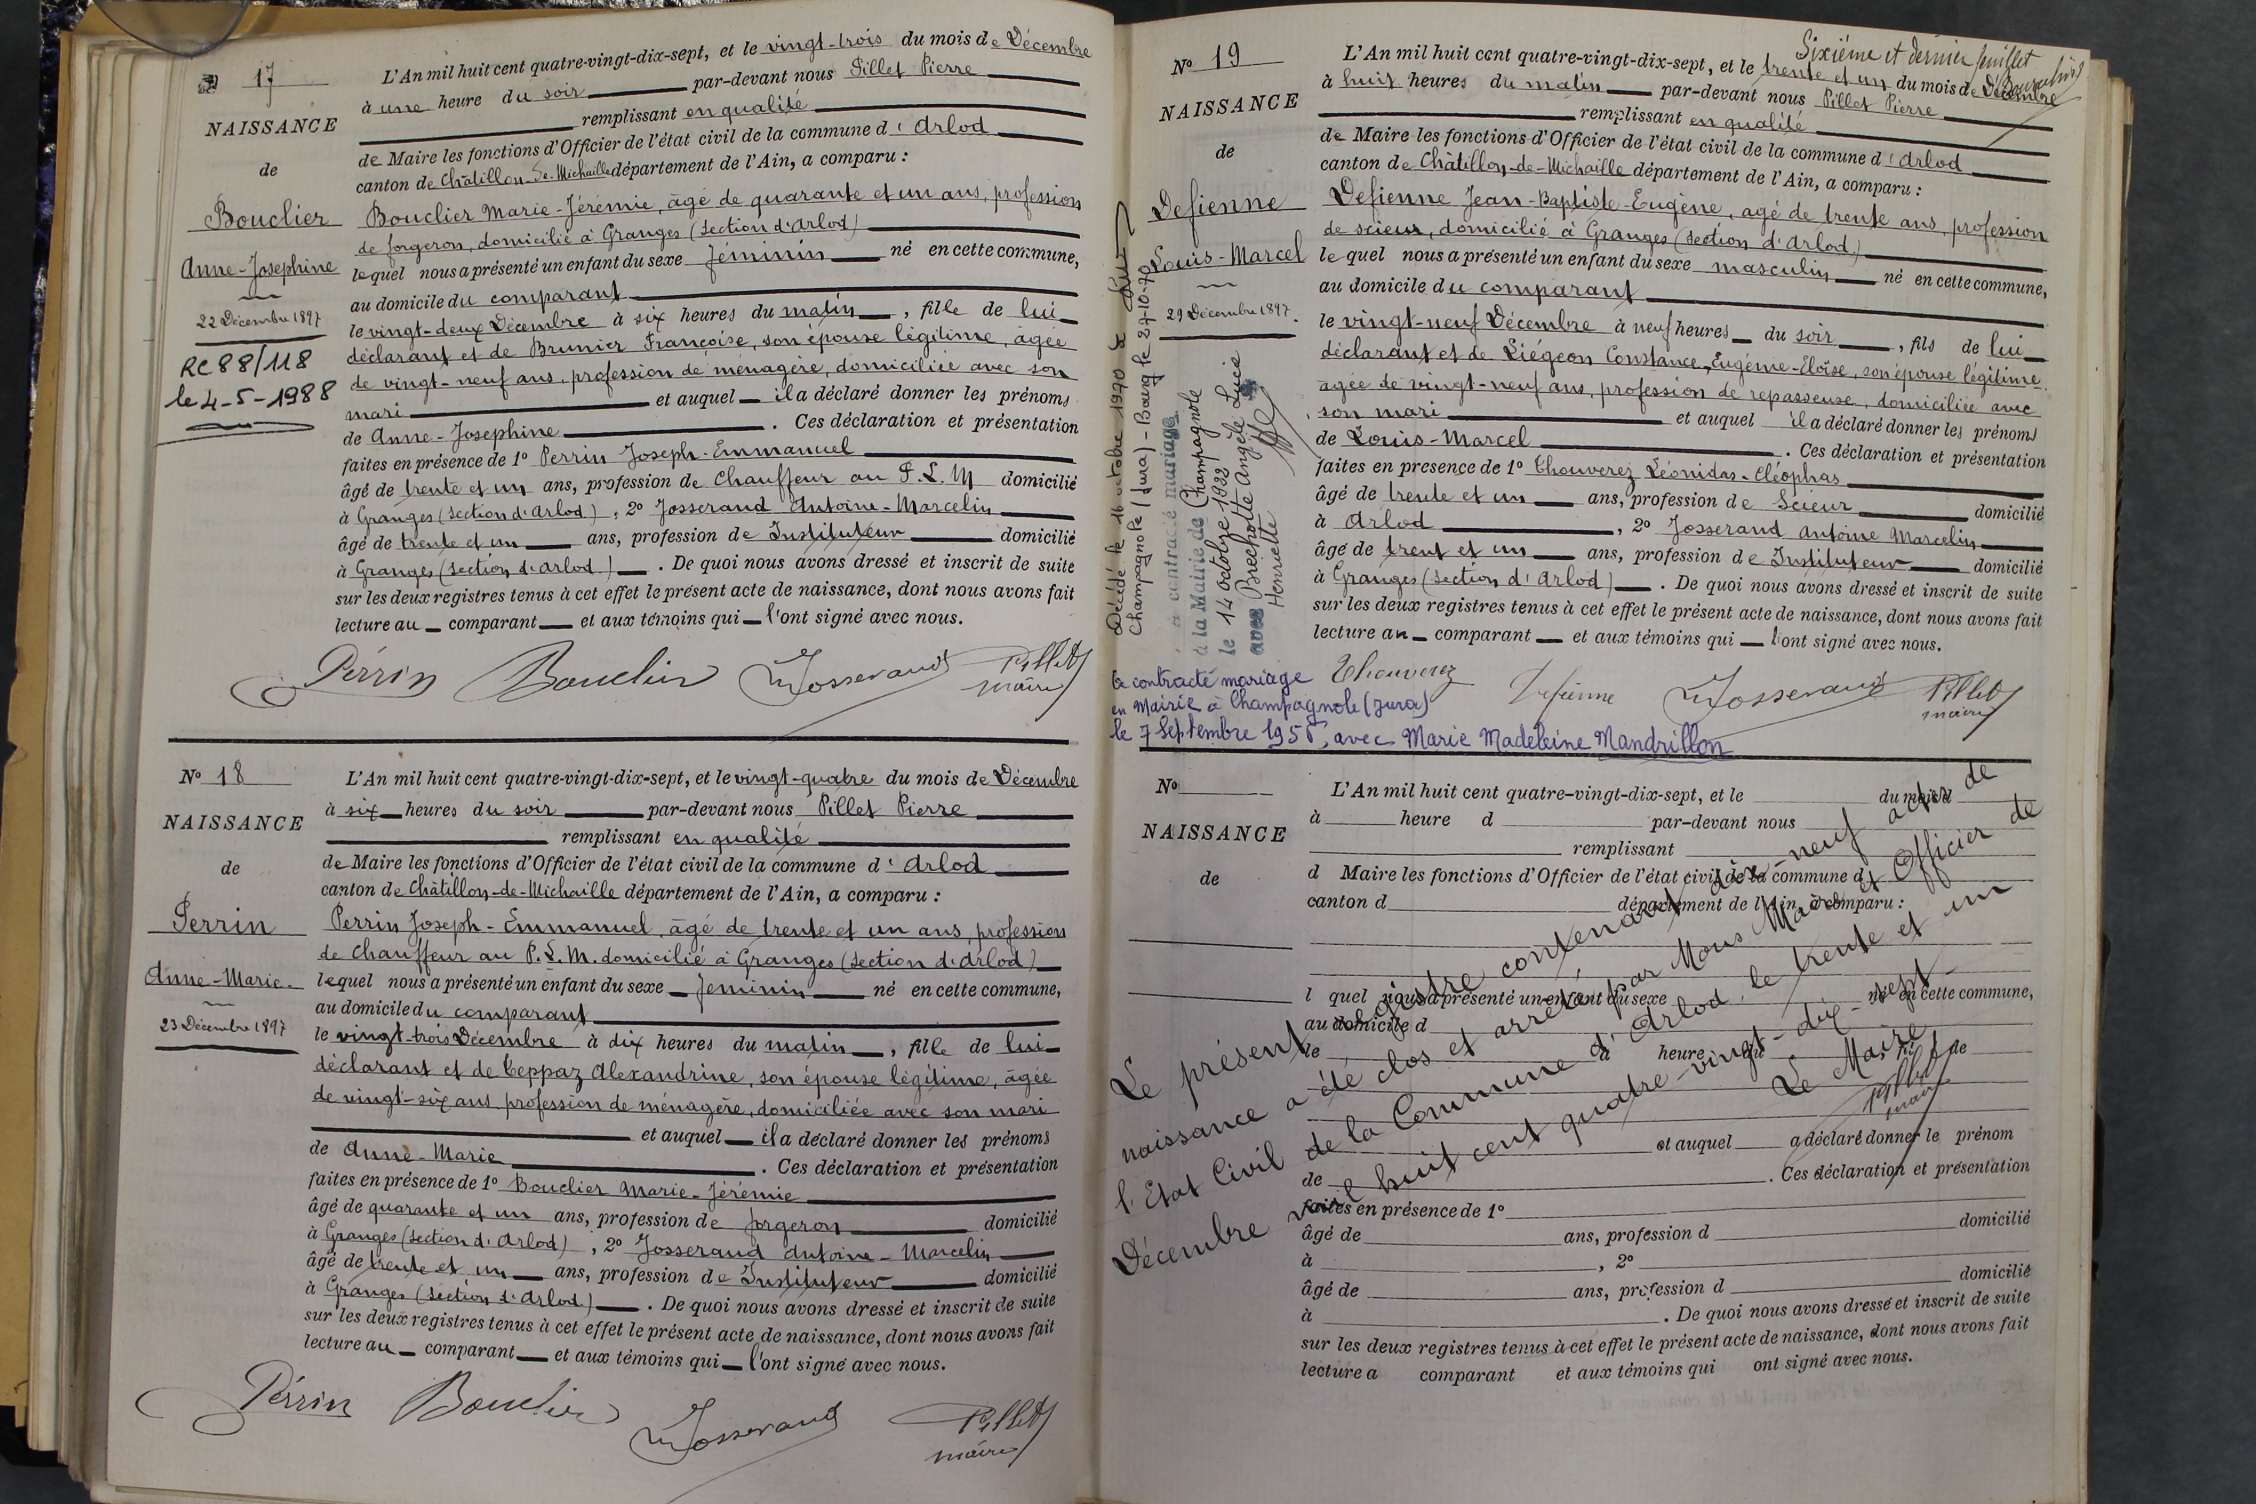 No 17
NAISSANCE
de
Bouclier
Anne-Josephine
22 Décembre 1897
RC 88/118
le 4-5-1988
L'An mil huit cent quatre-vingt-dix-sept, et le vingt-trois du mois de Décembre
à une heure du soir par-devant nous Pillet Pierre
remplissant en qualité
de Maire les fonctions d'Officier de l'état civil de la commune d'Arlod
canton de Châtillon-de-Michaille département de l'Ain, a comparu :
Bouclier Marie-Jérémie, âgé de quarante et un ans, profession
de forgeron, domicilié à Granges (Section d'Arlod)
lequel nous a présenté un enfant du sexe féminin né en cette commune,
au domicile du comparant
le vingt-deux Décembre à six heures du matin, fille de lui
déclarant et de Brunier Françoise, son épouse légitime, âgée
de vingt-neuf ans, profession de ménagère, domiciliée avec son
mari et auquel il a déclaré donner les prénoms
de Anne-Josephine . Ces déclaration et présentation
faites en présence de 1º Perrin Joseph-Emmanuel
âgé de trente et un ans, profession de Chauffeur au P.L.M domicilié
à Granges (Section d'Arlod), 2º Josserand Antoine-Marcelin
âgé de trente et un ans, profession de Instituteur domicilié
à Granges (Section d'Arlod). De quoi nous avons dressé et inscrit de suite
sur les deux registres tenus à cet effet le présent acte de naissance, dont nous avons fait
lecture au comparant et aux témoins qui l'ont signé avec nous.
Pérrin Bouclier Josserand Pillet
maire
No 18
NAISSANCE
de
Perrin
Anne-Marie
23 Décembre 1897
L'An mil huit cent quatre-vingt-dix-sept, et le vingt-quatre du mois de Décembre
à six heures du soir par-devant nous Pillet Pierre
remplissant en qualité
de Maire les fonctions d'Officier de l'état civil de la commune d'Arlod
canton de Châtillon-de-Michaille département de l'Ain, a comparu :
Perrin Joseph-Emmanuel, âgé de trente et un ans, profession
de Chauffeur au P.L.M. domicilié à Granges (Section d'Arlod)
lequel nous a présenté un enfant du sexe féminin né en cette commune,
au domicile du comparant
le vingt-trois Décembre à dix heures du matin, fille de lui
déclarant et de Ceppaz Alexandrine, son épouse légitime, âgée
de vingt-six ans profession de ménagère, domiciliée avec son mari
et auquel il a déclaré donner les prénoms
de Anne-Marie . Ces déclaration et présentation
faites en présence de 1º Bouclier Marie-Jérémie
âgé de quarante et un ans, profession de forgeron domicilié
à Granges (Section d'Arlod), 2º Josserand Antoine-Marcelin
âgé de trente et un ans, profession de Instituteur domicilié
à Granges (Section d'Arlod). De quoi nous avons dressé et inscrit de suite
sur les deux registres tenus à cet effet le présent acte de naissance, dont nous avons fait
lecture au comparant et aux témoins qui l'ont signé avec nous.
Pérrin Bouclier Josserand Pillet
maire
Sixième et dernier feuillet
No 19
NAISSANCE
de
Defienne
Louis-Marcel
29 Décembre 1897.
L'An mil huit cent quatre-vingt-dix-sept, et le trente et un du mois de Décembre
à huit heures du matin par-devant nous Pillet Pierre
remplissant en qualité
de Maire les fonctions d'Officier de l'état civil de la commune d'Arlod
canton de Châtillon-de-Michaille département de l'Ain, a comparu :
Defienne Jean-Baptiste-Eugène, agé de trente ans, profession
de scieur, domicilié à Granges (Section d'Arlod)
lequel nous a présenté un enfant du sexe masculin né en cette commune,
au domicile du comparant
le vingt-neuf Décembre à neuf heures du soir, fils de lui
déclarant et de Liégeon Constance-Eugénie-Eloïse, son épouse légitime
agée de vingt-neuf ans, profession de repasseuse, domiciliée avec
son mari et auquel il a déclaré donner les prénoms
de Louis-Marcel . Ces déclaration et présentation
faites en présence de 1º Thouverez Léonidas-Cléophas
âgé de trente et un ans, profession de Scieur domicilié
à Arlod , 2º Josserand Antoine Marcelin
âgé de trent et un ans, profession de Instituteur domicilié
à Granges (Section d'Arlod). De quoi nous avons dressé et inscrit de suite
sur les deux registres tenus à cet effet le présent acte de naissance, dont nous avons fait
lecture au comparant et aux témoins qui l'ont signé avec nous.
Thouverez Defienne Josserand Pillet
maire
Décédé le 16 octobre 1970 à
Champagnole (Jura) - Bourg le 27-10-70
a contracté mariage
à la Mairie de Champagnole
le 14 octobre 1922
avec Brechotte Angèle Lucie
Henriette
a contracté mariage
en Mairie à Champagnole (Jura)
le 7 Septembre 1955, avec Marie Madeleine Mandrillon
No
NAISSANCE
de
L'An mil huit cent quatre-vingt-dix-sept, et le du mois d
à heure d par-devant nous
remplissant
d Maire les fonctions d'Officier de l'état civil de la commune d
canton d département de l'Ain, a comparu :
l quel nous a présenté un enfant du sexe né en cette commune,
au domicile d
le à heure du , fi de
et auquel a déclaré donner le prénom
de . Ces déclaration et présentation
faites en présence de 1º
âgé de ans, profession d domicilié
à , 2º
âgé de ans, profession d domicilié
à . De quoi nous avons dressé et inscrit de suite
sur les deux registres tenus à cet effet le présent acte de naissance, dont nous avons fait
lecture a comparant et aux témoins qui ont signé avec nous.
Le présent registre contenant dix-neuf actes de
naissance a été clos et arrêté par Nous Maire et Officier de
l'Etat Civil de la Commune d'Arlod, le trente et un
Décembre mil huit cent quatre-vingt-dix-sept
Le Maire
Pillet
maire